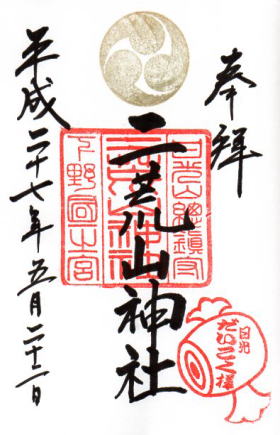 奉拝
日光山總鎮守
二荒山神社
下野國一之宮
日光
だいこく様
平成二十七年五月二十二日